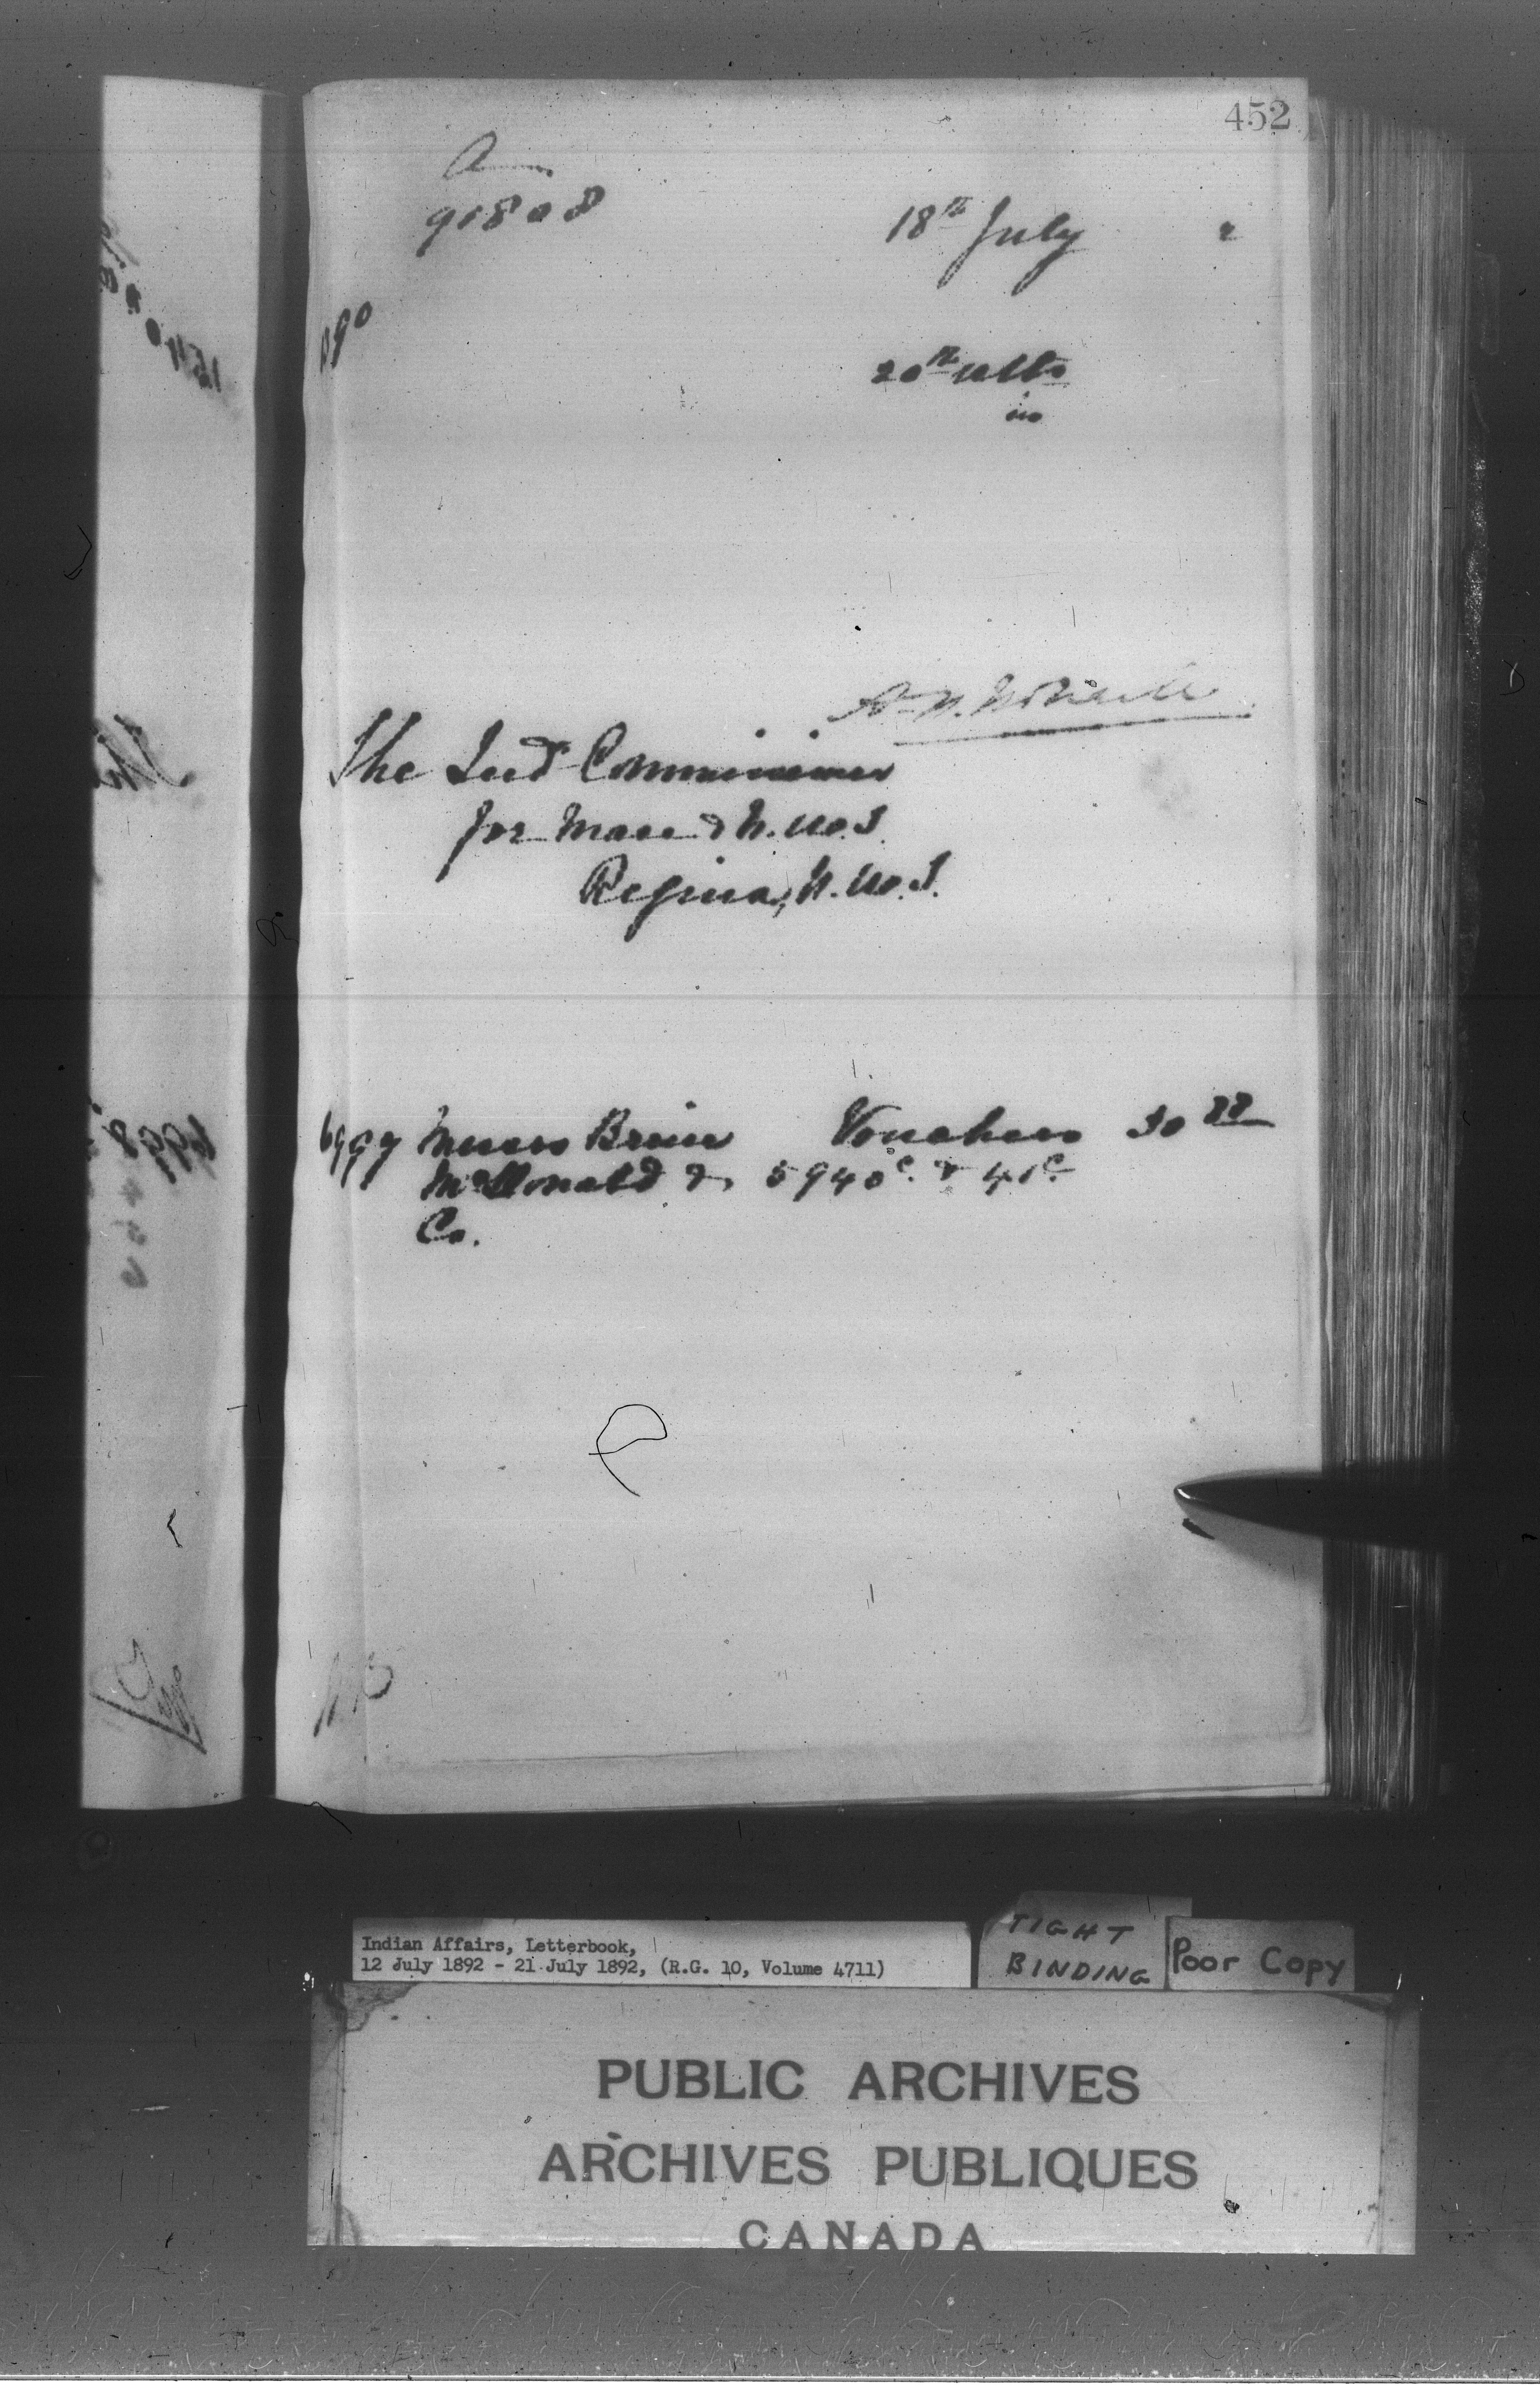 452
A
91808
18th July 2
90
20th ulto
in
The Ind Commissioner
for Man & N.W.T.
Regina, N.W.T.
6997 Messrs Vouchers 30 88
McDonald & 5940c. & 41c.
Co.
Indian Affairs, Letterbook,
12 July 1892 - 21 July 1892, (R.G. 10, Volume 4711)
TIGHT
BINDING
Poor Copy
PUBLIC ARCHIVES
ARCHIVES PUBLIQUES
CANADA